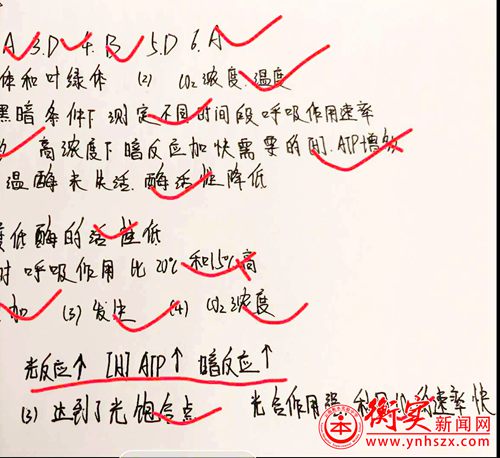 A 3.D 4.B 5.D 6.A
体和叶绿体 (2) CO₂浓度.温度
黑暗条件下测定不同时间段呼吸作用速率
高浓度下暗反应加快需要的[H].ATP增多
温酶未失活.酶活性降低
度低酶的活性低
时呼吸作用比20%和15%高
加 (3) 发生 (4) CO₂浓度
光反应↑ [H] ATP↑ 暗反应↑
(3) 达到了光饱合点 光合作用强 利用 的速率快
衡实新闻网
www.ynhszx.com